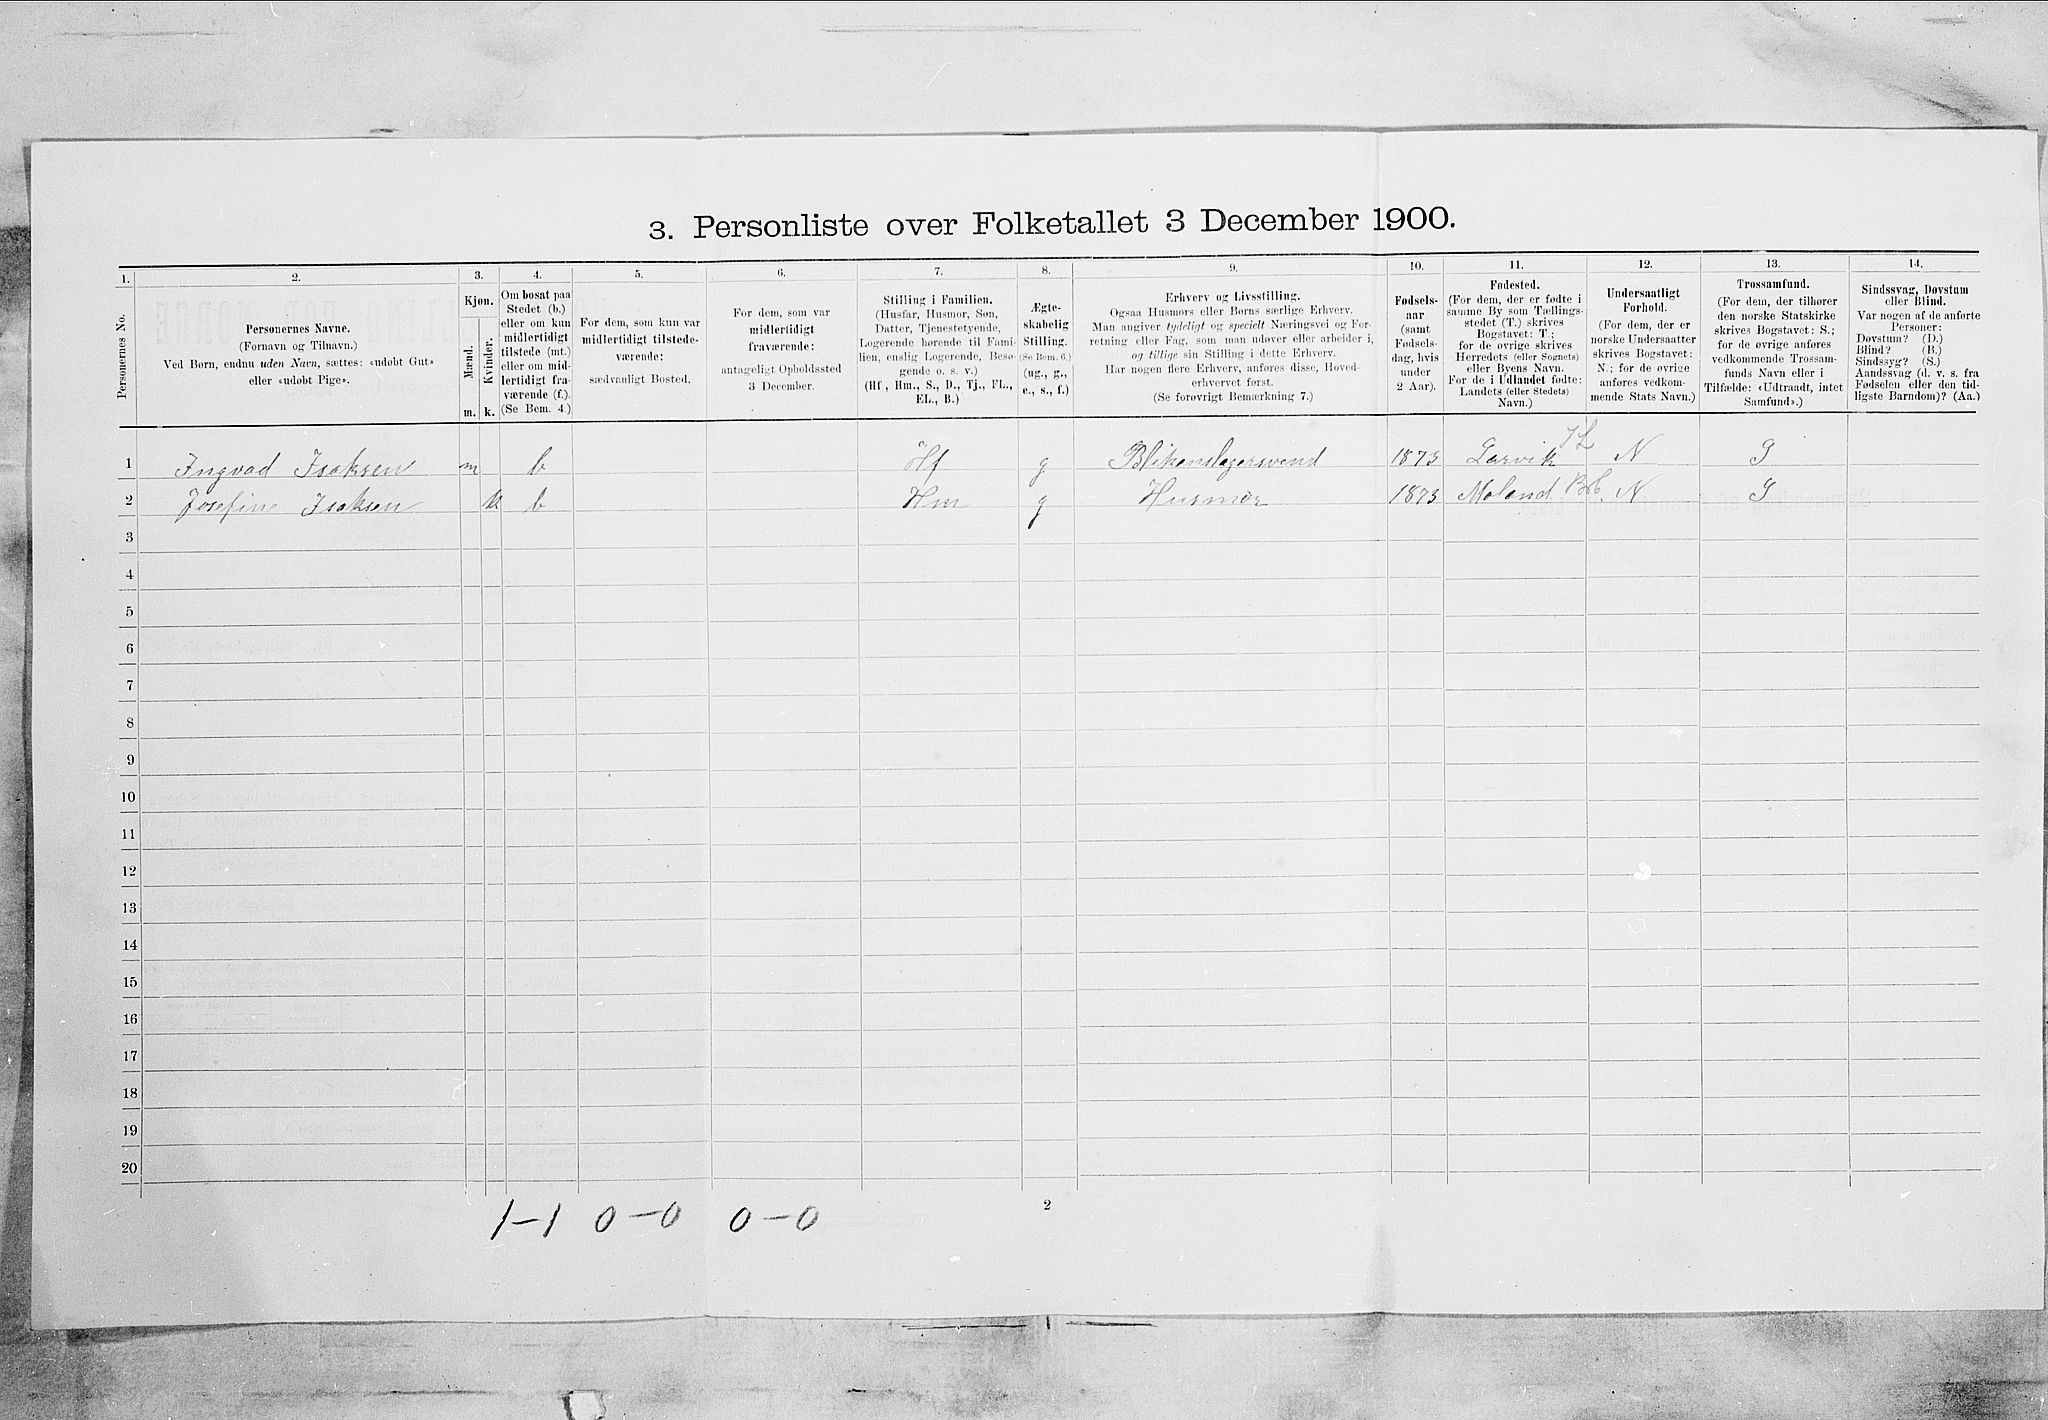 3. Personliste over Folketallet 3 December 1900.
1. 2. 3. 4. 5. 6. 7. 8. 9. 10. 11. 12. 13. 14.
Personernes No.
Personernes Navne.
(Fornavn og Tilnavn.)
Ved Børn, endnu uden Navn, sættes: «udøbt Gut»
eller «udøbt Pige».
Kjøn.
Mænd.
Kvinder.
m. k.
Om bosat paa
Stedet (b.)
eller om kun
midlertidigt
tilstede (mt.)
eller om mid-
lertidigt fra-
værende (f.).
(Se Bem. 4.)
For dem, som kun var
midlertidigt tilstede-
værende:
sædvanligt Bosted.
For dem, som var
midlertidigt
fraværende:
antageligt Opholdssted
3 December.
Stilling i Familien.
(Husfar, Husmor, Søn,
Datter, Tjenestetyende,
Logerende hørende til Fami-
lien, enslig Logerende, Besø-
gende o. s. v.)
(Hf., Hm., S., D., Tj., FL.,
EL., B.)
Ægte-
skabelig
Stilling.
(Se Bem. 6.)
(ug., g.,
e., s., f.)
Erhverv og Livsstilling.
Ogsaa Husmors eller Børns særlige Erhverv.
Man angiver tydeligt og specielt Næringsvei og For-
retning eller Fag, som man udøver eller arbeider i,
og tillige sin Stilling i dette Erhverv.
Har nogen flere Erhverv, anføres disse, Hoved-
erhvervet først.
(Se forøvrigt Bemærkning 7.)
Fødsels-
aar
(samt
Fødsels-
dag, hvis
under
2 Aar).
Fødested.
(For dem, der er fødte i
samme By som Tællings-
stedet (T.) skrives
Bogstavet: T.;
for de øvrige skrives
Herredets (eller Sognets)
eller Byens Navn.
For de i Udlandet fødte:
Landets (eller Stedets)
Navn.)
Undersaatligt
Forhold.
(For dem, der er
norske Undersaatter
skrives Bogstavet:
N.; for de øvrige
anføres vedkom-
mende Stats Navn.)
Trossamfund.
(For dem, der tilhører
den norske Statskirke
skrives Bogstavet: S.;
for de øvrige anføres
vedkommende Trossam-
funds Navn eller i
Tilfælde: «Udtraadt, intet
Samfund».)
Sindssvag, Døvstum
eller Blind.
Var nogen af de anførte
Personer:
Døvstum? (D.)
Blind? (B.)
Sindssyg? (S.)
Aandssvag (d. v. s. fra
Fødselen eller den tid-
ligste Barndom)? (Aa.)
1 Ingvad Isaksen m b Hf g Blikenslagersvend 1873 Larvik N S
2 Josefine Isaksen k b Hm g Husmor 1873 Moland N S
3
4
5
6
7
8
9
10
11
12
13
14
15
16
17
18
19
20
1-1 0-0 0-0
2